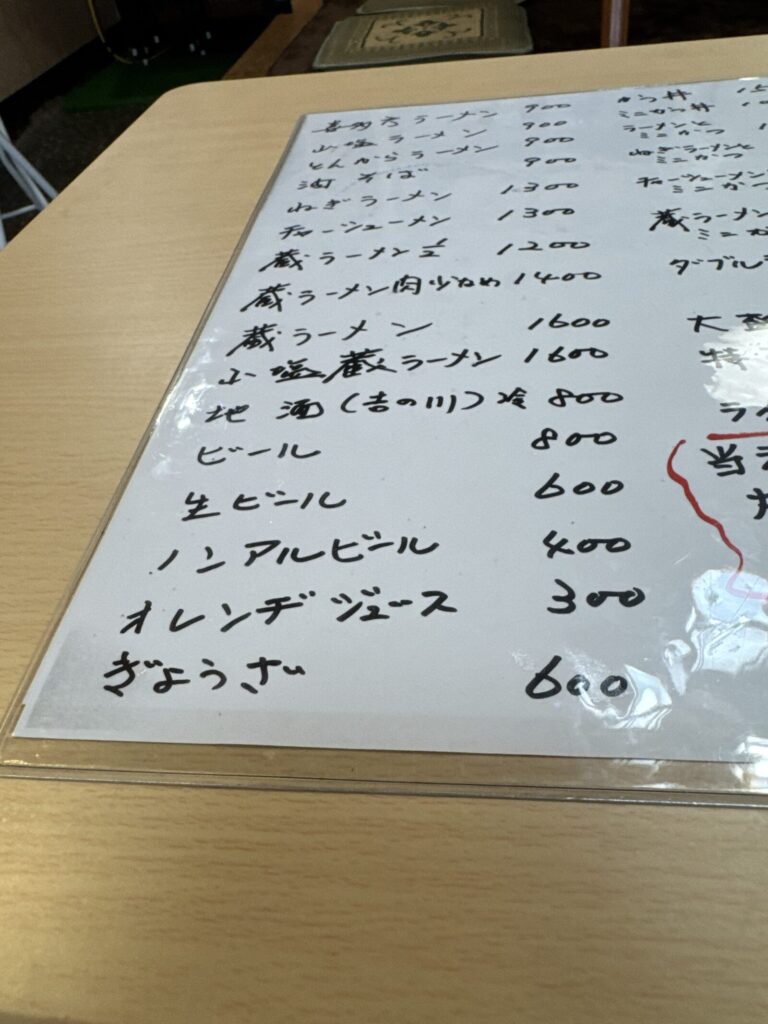 喜多方ラーメン 900
山塩ラーメン 900
とんからラーメン 900
油そば 900
ねぎラーメン 1300
チャーシューメン 1300
蔵ラーメン 1/2 1200
蔵ラーメン肉少なめ 1400
蔵ラーメン 1600
山塩蔵ラーメン 1600
地酒(吉の川)冷 800
ビール 800
生ビール 600
ノンアルビール 400
オレンヂジュース 300
ぎょうざ 600
かつ丼
ミニかつ丼
ラーメンと
ミニかつ
ねぎラーメンと
ミニかつ
チャーシューメン
ミニかつ
蔵ラーメン
ミニか
ダブル
大
特
当